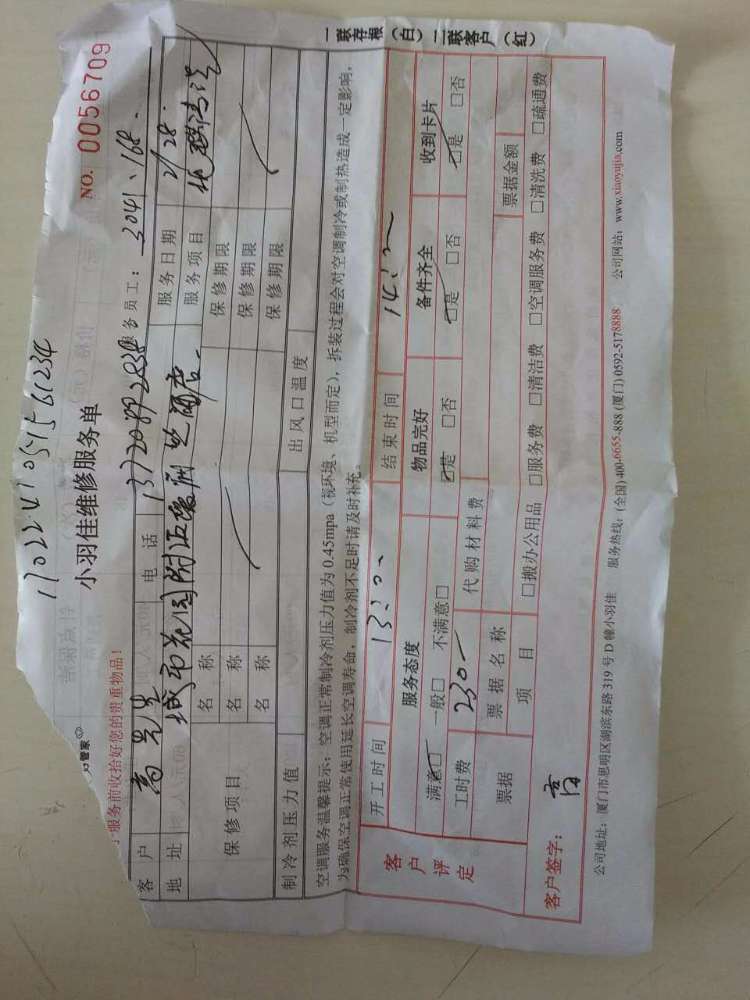 小羽佳维修服务单
NO. 0056709
服务前收拾好您的贵重物品!
服务员工: 3041、168.
客户 高先生 电话 服务日期 2/28.
地址 服务项目
保修项目 名称 保修期限
名称 保修期限
名称 保修期限
制冷剂压力值 出风口温度
空调服务温馨提示: 空调正常制冷剂压力值为 0.45mpa (视环境、机型而定), 拆装过程会对空调制冷或制热造成一定影响,
为确保空调正常使用延长空调寿命, 制冷剂不足时请及时补充。
一联存根(白) 二联客户(红)
客户评定 开工时间 结束时间
服务态度 物品完好 备件齐全 收到卡片
满意□ 一般□ 不满意□ □是 □否 □是 □否 □是 □否
工时费 230- 代购材料费
票据 票据名称 票据金额
项目 □搬办公用品 □服务费 □清洁费 □空调服务费 □清洗费 □疏通费
客户签字: 高
公司地址: 厦门市思明区湖滨东路 319 号 D 幢小羽佳 服务热线: (全国) 400-6655-888 (厦门) 0592-5178888 公司网站: www.xiaoyujia.com